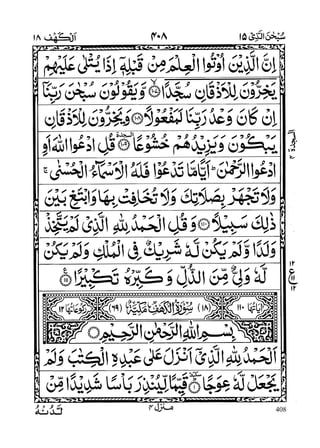 سُبْحٰنَ الَّذِیْ ۱۵ ۴۰۸ اَلْكَهْف ۱۸
اِنَّ الَّذِیْنَ اُوْتُوا الْعِلْمَ مِنْ قَبْلِهٖۤ اِذَا یُتْلٰى عَلَیْهِمْ
یَخِرُّوْنَ لِلْاَذْقَانِ سُجَّدًاۙ۝۱۰۷ وَّیَقُوْلُوْنَ سُبْحٰنَ رَبِّنَاۤ
اِنْ كَانَ وَعْدُ رَبِّنَا لَمَفْعُوْلًا۝۱۰۸ وَیَخِرُّوْنَ لِلْاَذْقَانِ
یَبْكُوْنَ وَیَزِیْدُهُمْ خُشُوْعًا۩۝۱۰۹ قُلِ ادْعُوا اللّٰهَ اَوِ
ادْعُوا الرَّحْمٰنَؕ اَیًّامَّا تَدْعُوْا فَلَهُ الْاَسْمَآءُ الْحُسْنٰىۚ
وَلَا تَجْهَرْ بِصَلَاتِكَ وَلَا تُخَافِتْ بِهَا وَابْتَغِ بَیْنَ
ذٰلِكَ سَبِیْلًا۝۱۱۰ وَقُلِ الْحَمْدُ لِلّٰهِ الَّذِیْ لَمْ یَتَّخِذْ
وَلَدًا وَّلَمْ یَكُنْ لَّهٗ شَرِیْكٌ فِی الْمُلْكِ وَلَمْ یَكُنْ
لَّهٗ وَلِیٌّ مِّنَ الذُّلِّ وَكَبِّرْهُ تَكْبِیْرًا۝۱۱۱
اٰیَاتُهَا ۱۱۰ (۱۸) سُوْرَةُ الْكَهْفِ مَكِّیَّةٌ (۶۹) رُكُوْعَاتُهَا ۱۲
بِسْمِ اللّٰهِ الرَّحْمٰنِ الرَّحِیْمِ
اَلْحَمْدُ لِلّٰهِ الَّذِیْۤ اَنْزَلَ عَلٰى عَبْدِهِ الْكِتٰبَ وَلَمْ
یَجْعَلْ لَّهٗ عِوَجًا۝۱ قَیِّمًا لِّیُنْذِرَ بَاْسًا شَدِیْدًا مِّنْ
منزل ۴
لَّدُنْهُ
408
السجدة ۴
۱۲
ع
۱۱
۱۲